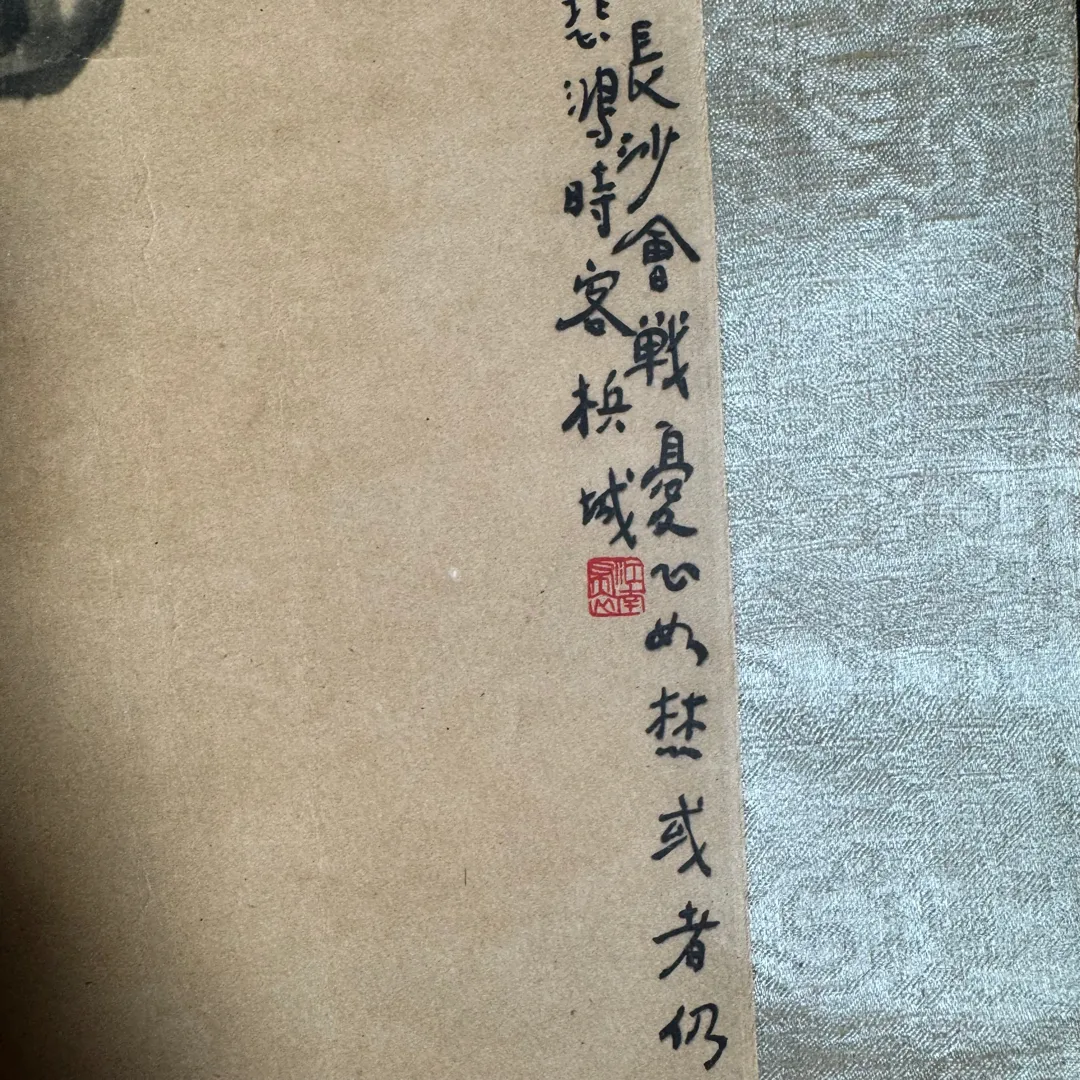 長沙會戰憂心如焚或者仍
悲鴻時客梹城
江南